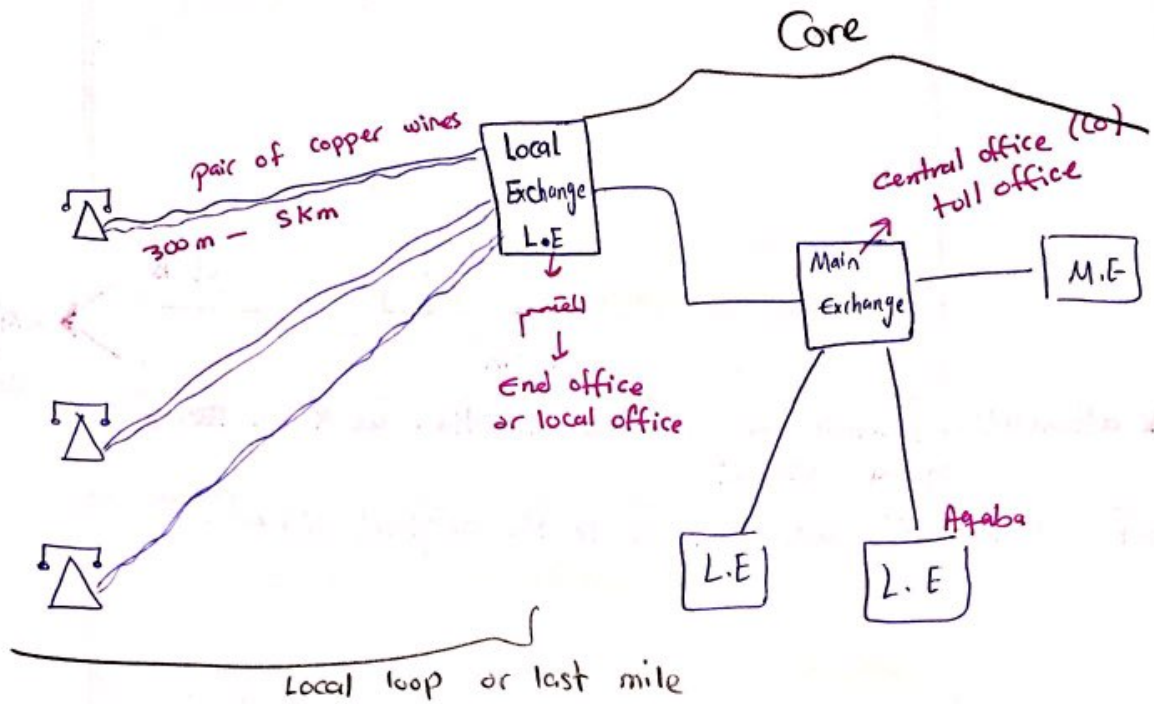 Core
pair of copper wires
300m - 5km
Local
Exchange
L.E
End office
or local office
Central office (CO)
toll office
Main
Exchange
M.E
L.E
Aqaba
L.E
Local loop or last mile